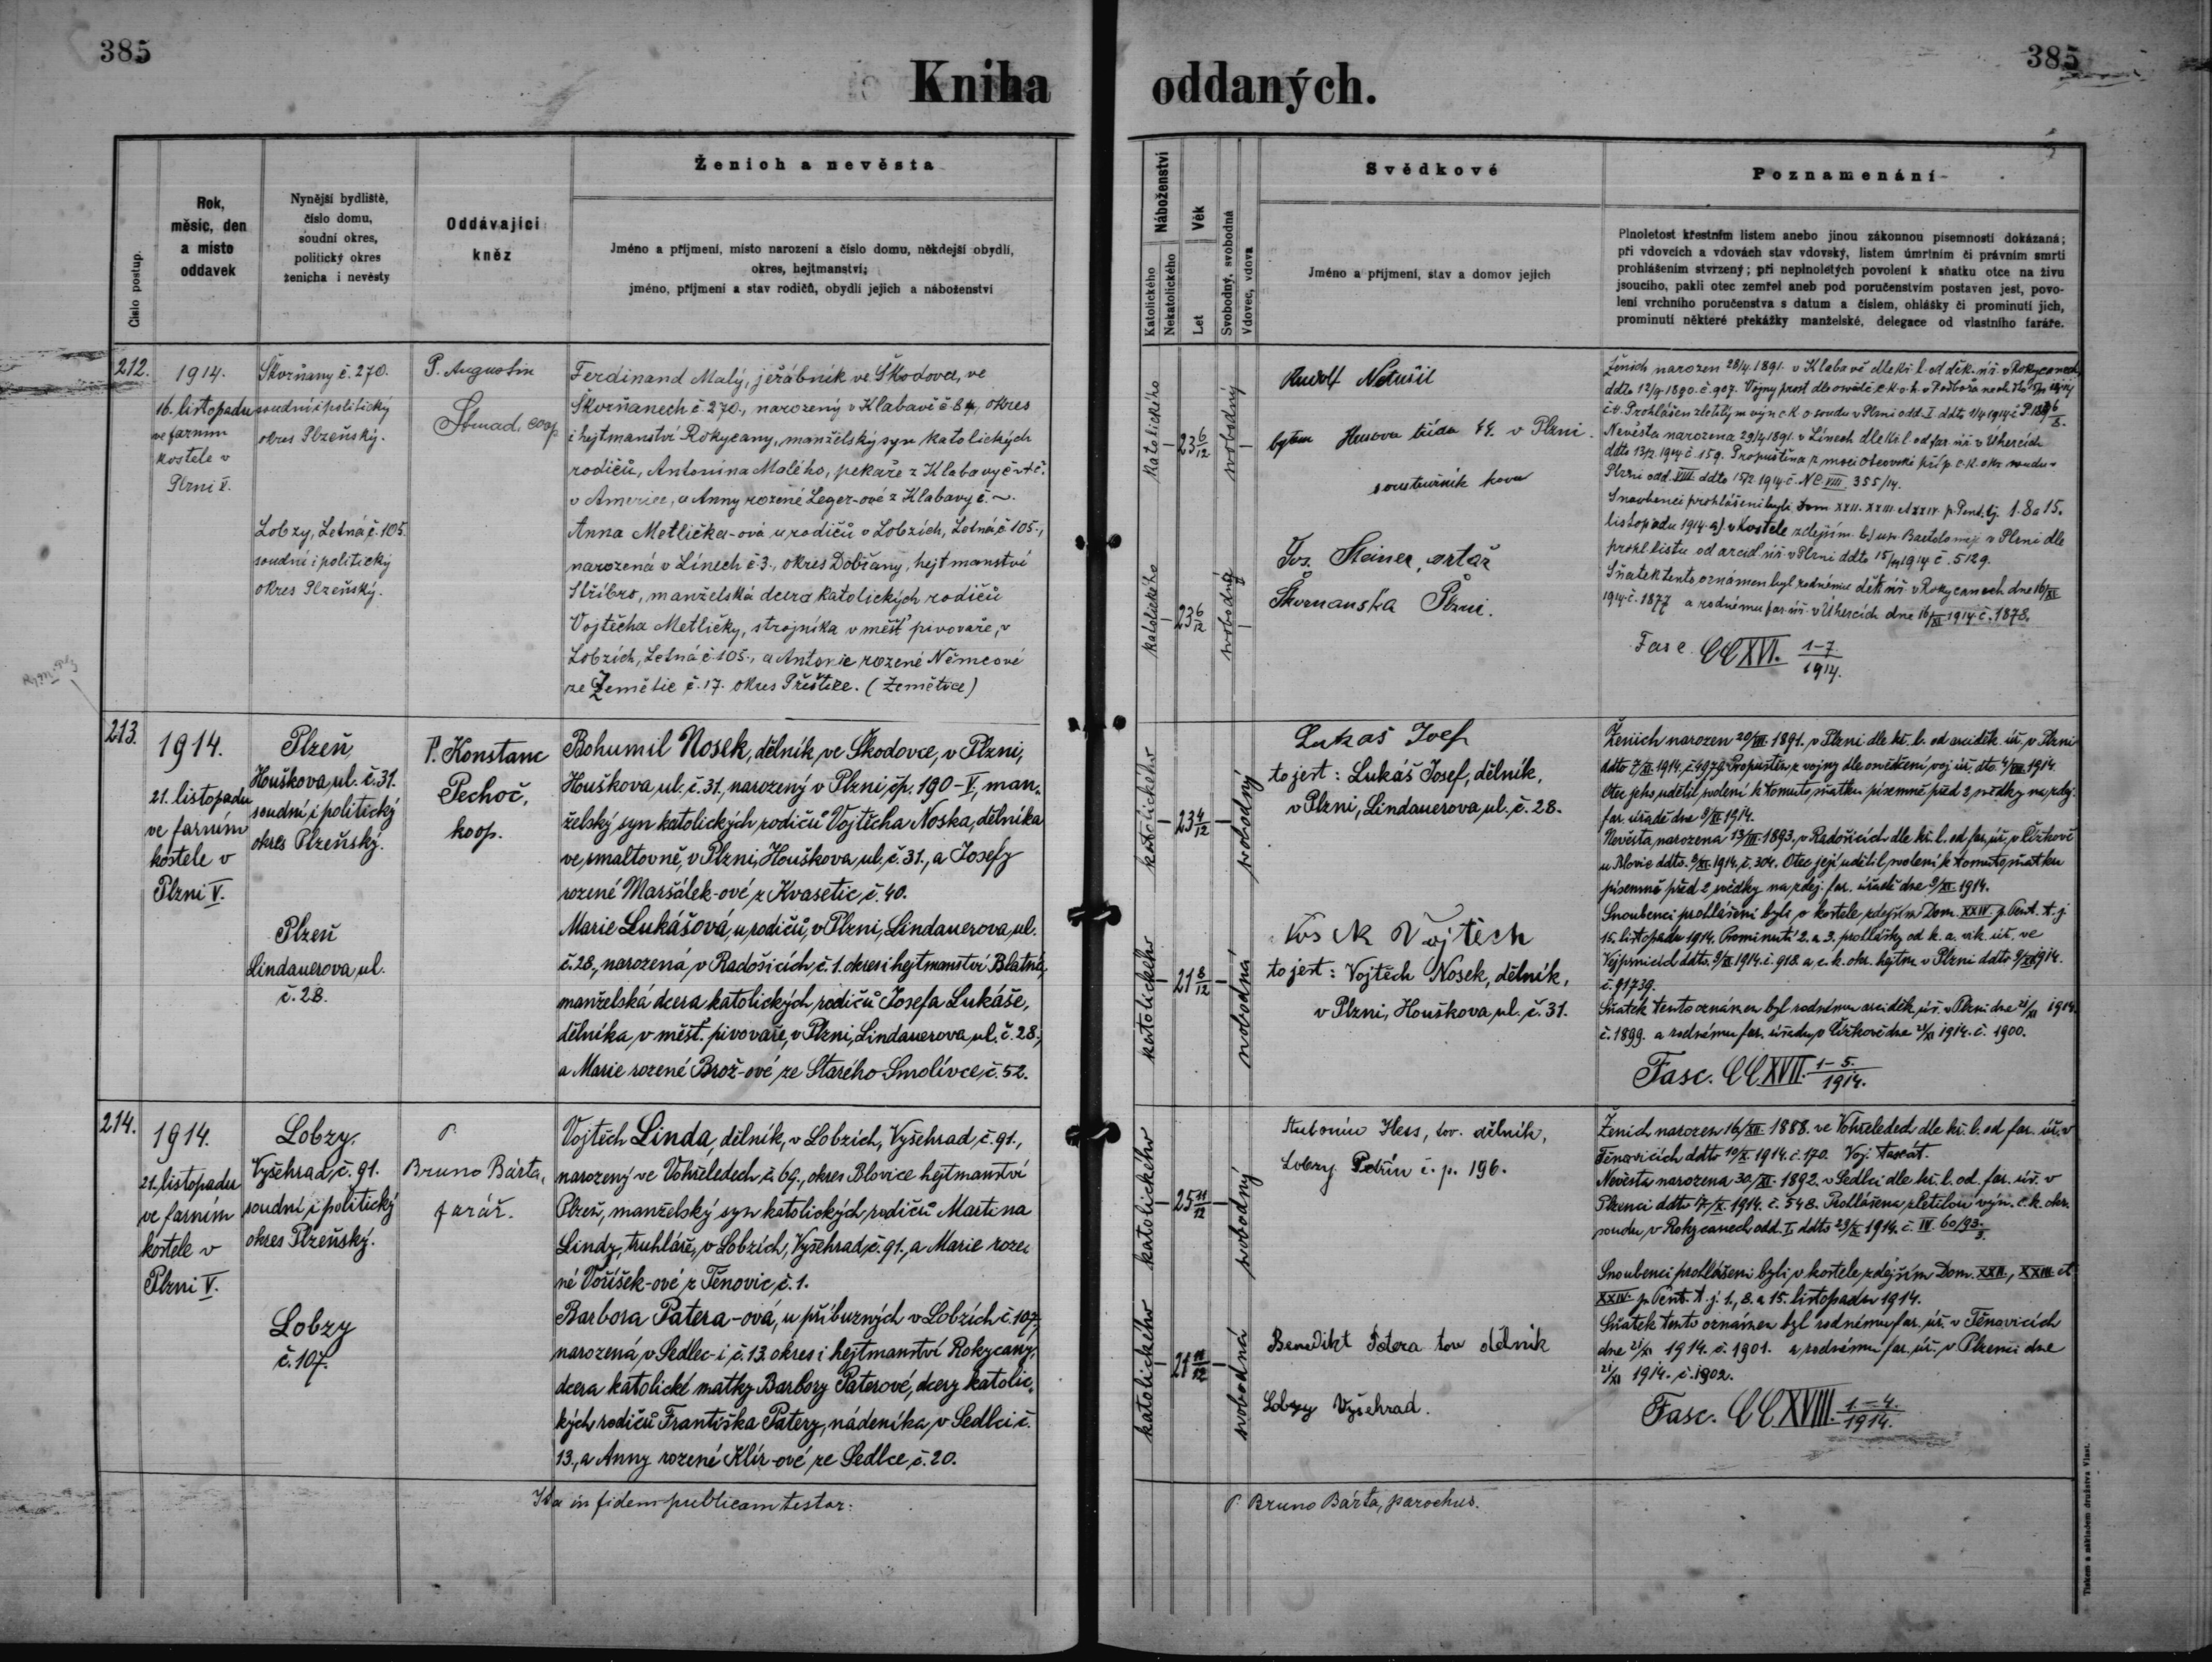 385
385
Kniha oddaných.
Číslo postup.
Rok,
měsíc, den
a místo
oddavek
Nynější bydliště,
číslo domu,
soudní okres,
politický okres
ženicha i nevěsty
Oddávající
kněz
Ženich a nevěsta
Jméno a příjmení, místo narození a číslo domu, někdejší obydlí,
okres, hejtmanství;
jméno, příjmení a stav rodičů, obydlí jejich a náboženství
Náboženství
Katolického
Nekatolického
Věk
Let
Svobodný, svobodná
Vdovec, vdova
Svědkové
Jméno a příjmení, stav a domov jejich
Poznamenání
Plnoletost křestním listem anebo jinou zákonnou písemností dokázaná;
při vdovcích a vdovách stav vdovský, listem úmrtním či právním smrti
prohlášením stvrzený; při neplnoletých povolení k sňatku otce na živu
jsoucího, pakli otec zemřel aneb pod poručenstvím postaven jest, povo-
lení vrchního poručenstva s datum a číslem, ohlášky či prominutí jich,
prominutí některé překážky manželské, delegace od vlastního faráře.
212.
1914.
16. listopadu
ve farním
kostele v
Plzni V.
Škvrňany č. 270.
soudní i politický
okres Plzeňský.
Lobzy, Letná č. 105.
soudní i politický
okres Plzeňský.
P. Augustin
Strnad, coop
Ferdinand Malý, jeřábník ve Škodovce, ve
Škvrňanech č. 270., narozený v Klabavě č. 84, okres
i hejtmanství Rokycany, manželský syn katolických
rodičů, Antonína Malého, pekaře z Klabavy č.
v Americe, a Anny rozené Leger-ové z Klabavy č. ~.
Anna Metlička-ová, u rodičů v Lobzích, Letná č. 105.,
narozená v Línech č. 3., okres Dobřany, hejtmanství
Stříbro, manželská dcera katolických rodičů
Vojtěcha Metličky, strojníka v měšť. pivovaře, v
Lobzích, Letná č. 105., a Antonie rozené Němcové
ze Zemětic č. 17. okres Přeštice. (Zemětice)
katolického
23 6/12
svobodný
katolického
23 6/12
svobodná
Rudolf Netušil
bytem Husova třída 44. v Plzni.
soustružník kovu
Jos. Steiner,
Škvrnanská Plzni.
Ženich narozen 28/4 1891. v Klabavě dle kř. l. od děk. úř. v Rokycanech
ddto 12/9. 1890. č. 907.
Nevěsta narozena 29/4 1891. v Línech dle kř. l. od far. úř. v Úhercích
ddto 13/2. 1914 č. 159. Propuštěna z moci otcovské příp. c. k. okr. soudu v
Plzni odd. VIII ddto 15/2 1914 č. Nc VIII 355/14.
Snoubenci prohlášeni byli Dom. XXII. XXIII. et XXIV. p. Pent. tj. 1. 8 a 15.
listopadu 1914. a) v kostele zdejším. b) u sv. Bartoloměje v Plzni dle
prohl. listu od arciď. úř. v Plzni ddto 15/XI 1914 č. 5129.
Sňatek tento oznámen byl rodnému děk. úř. v Rokycanech dne 16/XI
1914 č. 1877 a rodnému far. úř. v Úhercích dne 16/XI 1914 č. 1878.
Fasc. CCXVI. 1-7/1914.
213.
1914.
21. listopadu
ve farním
kostele v
Plzni V.
Plzeň
Houškova ul. č. 31.
soudní i politický
okres Plzeňský.
Plzeň
Lindauerova ul.
č. 28.
P. Konstanc
Pechoč,
koop.
Bohumil Nosek, dělník ve Škodovce, v Plzni,
Houškova ul. č. 31., narozený v Plzni čp. 190-V., man-
želský syn katolických rodičů Vojtěcha Noska, dělníka
ve smaltovně, v Plzni, Houškova ul. č. 31., a Josefy
rozené Maršálek-ové z Kvasetic č. 40.
Marie Lukášová, u rodičů, v Plzni, Lindauerova ul.
č. 28., narozená v Radošicích č. 1. okres i hejtmanství Blatná,
manželská dcera katolických rodičů Josefa Lukáše,
dělníka v měšť. pivovaře, v Plzni, Lindauerova ul. č. 28.,
a Marie rozené Brož-ové ze Starého Smolívce č. 52.
katolického
23 4/12
svobodný
katolického
21 8/12
svobodná
Lukaš Josef
to jest: Lukáš Josef, dělník,
v Plzni, Lindauerova ul. č. 28.
Nosek Vojtěch
to jest: Vojtěch Nosek, dělník,
v Plzni, Houškova ul. č. 31.
Ženich narozen 20/VII. 1891. v Plzni dle kř. l. od arciděk. úř. v Plzni
ddto 7/XI. 1914. č. 4979. Propuštěn z vojny dle osvědčení voj. úř. dto. 4/VIII. 1914.
Otec jeho udělil svolení k tomuto sňatku písemně před 2 svědky na zdej.
far. úřadě dne 8/XI. 1914.
Nevěsta narozena 13/III. 1893. v Radošicích dle kř. l. od far. úř. v Čížkově
u Blovic ddto. 8/XI. 1914. č. 304. Otec její udělil svolení k tomuto sňatku
písemně před 2 svědky na zdej. far. úřadě dne 9/XI. 1914.
Snoubenci prohlášeni byli v kostele zdejším Dom. XXIV. p. Pent. t. j.
15. listopadu 1914. Prominutí 2. a 3. prohlášky od k. a. vik. úř. ve
Vejprnicích ddto. 9/XI. 1914. č. 918. a c. k. okr. hejtm. v Plzni ddto 9/XI. 1914.
č. 91739.
Sňatek tento oznámen byl rodnému arciděk. úř. v Plzni dne 21/XI 1914.
č. 1899. a rodnému far. úřadu v Čížkově dne 21/XI 1914. č. 1900.
Fasc. CCXVII. 1-5./1914.
214.
1914.
21. listopadu
ve farním
kostele v
Plzni V.
Lobzy,
Vyšehrad č. 91.
soudní i politický
okres Plzeňský.
Lobzy
č. 107.
P.
Bruno Bárta,
farář.
Vojtěch Linda, dělník, v Lobzích, Vyšehrad č. 91.,
narozený ve Vohřeledech č. 69., okres Blovice hejtmanství
Plzeň, manželský syn katolických rodičů Martina
Lindy, truhláře, v Lobzích, Vyšehrad č. 91., a Marie roze-
né Voříšek-ové z Těnovic č. 1.
Barbora Patera-ová, u příbuzných v Lobzích č. 107.,
narozená v Sedlec-i, č. 13. okres i hejtmanství Rokycany,
dcera katolické matky Barbory Paterové, dcery katolic-
kých rodičů Františka Patery, nádeníka, v Sedlci č.
13., a Anny rozené Klír-ové ze Sedlce č. 20.
katolického
25 11/12
svobodný
katolického
21 11/12
svobodná
Antonín Hess, tov. dělník,
Lobzy Petřín č. p. 196.
Benedikt Patera tov dělník
Lobzy Vyšehrad.
Ženich narozen 16/XII. 1888. ve Vohřeledech dle kř. l. od far. úř. v
Těnovicích ddto 10/X. 1914. č. 170. Voj. taxát.
Nevěsta narozena 30/XI. 1892. v Sedlci dle kř. l. od. far. úř. v
Plzenci ddto 17/X. 1914. č. 548. Prohlášena zletilou výn. c. k. okr.
soudu v Rokycanech odd. I. ddto 29/X. 1914. č. IV. 60/93-3.
Snoubenci prohlášeni byli v kostele zdejším Dom. XXII., XXIII. et
XXIV. p. Pent. t. j. 1., 8. a 15. listopadu 1914.
Sňatek tento oznámen byl rodnému far. úř. v Těnovicích
dne 21/XI 1914. č. 1901. a rodnému far. úř. v Plzenci dne
21/XI 1914. č. 1902.
Fasc. CCXVIII. 1.-4./1914.
Ita in fidem publicam testor:
P. Bruno Bárta, parochus.
Tiskem a nákladem družstva Vlast.